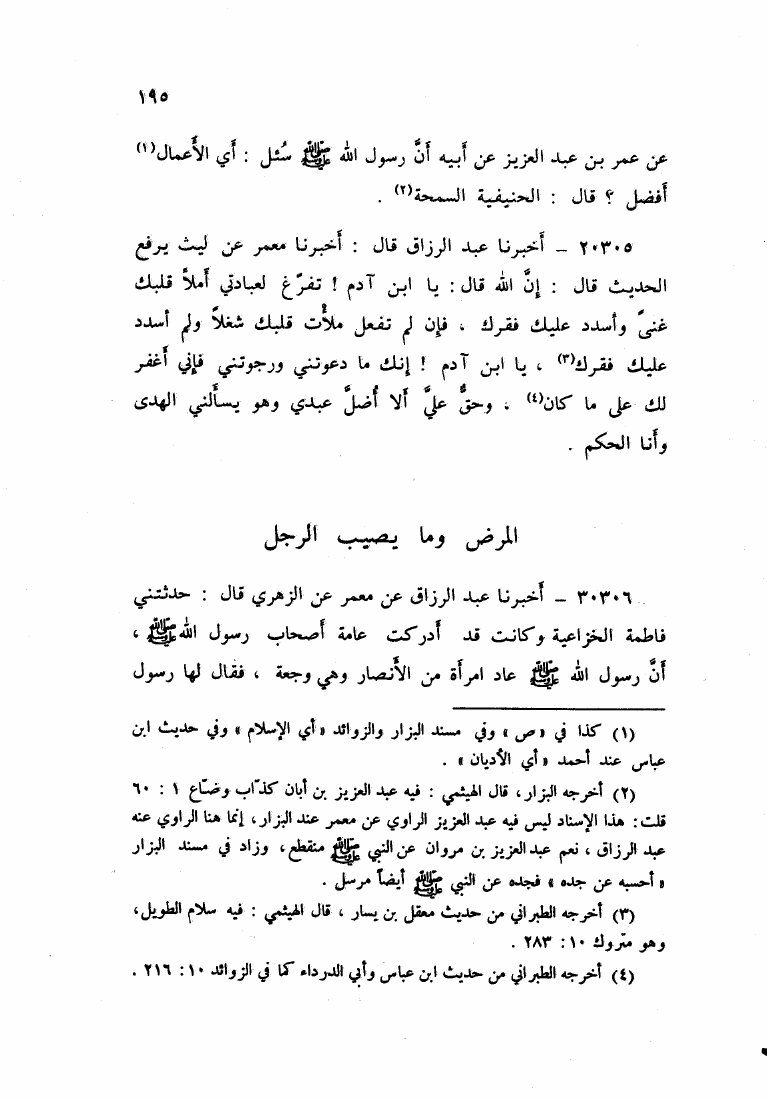 ١٩٥
عن عمر بن عبد العزيز عن أبيه أنَّ رسول الله ﷺ سُئل : أي الأَعمال(١)
أفضل ؟ قال : الحنيفية السمحة(٢) .
٢٠٣٠٥ – أَخبرنا عبد الرزاق قال : أَخبرنا معمر عن ليث يرفع
الحديث قال : إنَّ الله قال : يا ابن آدم ! تفرّغ لعبادتي أَملأ قلبك
غنىً وأسدد عليك فقرك ، فإن لم تفعل ملأْت قلبك شغلاً ولم أسدد
عليك فقرك(٣) ، يا ابن آدم ! إنك ما دعوتني ورجوتني فإني أَغفر
لك على ما كان(٤) ، وحقٌّ عليَّ أَلا أُضلَّ عبدي وهو يسأَلني الهدى
وأنا الحكم .
المرض وما يصيب الرجل
٣٠٣٠٦ – أَخبرنا عبد الرزاق عن معمر عن الزهري قال : حدثتني
فاطمة الخزاعية وكانت قد أدركت عامة أَصحاب رسول الله ﷺ ،
أَنَّ رسول الله ﷺ عاد امرأَة من الأَنصار وهي وجعة ، فقال لها رسول
(١) كذا في «ص» وفي مسند البزار والزوائد «أي الإسلام» وفي حديث ابن
عباس عند أحمد «أي الأديان» .
(٢) أخرجه البزار، قال الهيثمي : فيه عبد العزيز بن أبان كذّاب وضّاع ١ : ٦٠
قلت: هذا الإسناد ليس فيه عبد العزيز الراوي عن معمر عند البزار، إنما هنا الراوي عنه
عبد الرزاق ، نعم عبد العزيز بن مروان عن النبي ﷺ منقطع، وزاد في مسند البزار
«أحسبه عن جده» فجده عن النبي ﷺ أيضاً مرسل .
(٣) أخرجه الطبراني من حديث معقل بن يسار ، قال الهيثمي : فيه سلام الطويل،
وهو متروك ١٠ : ٢٨٣ .
(٤) أخرجه الطبراني من حديث ابن عباس وأبي الدرداء كما في الزوائد ١٠ : ٢١٦ .